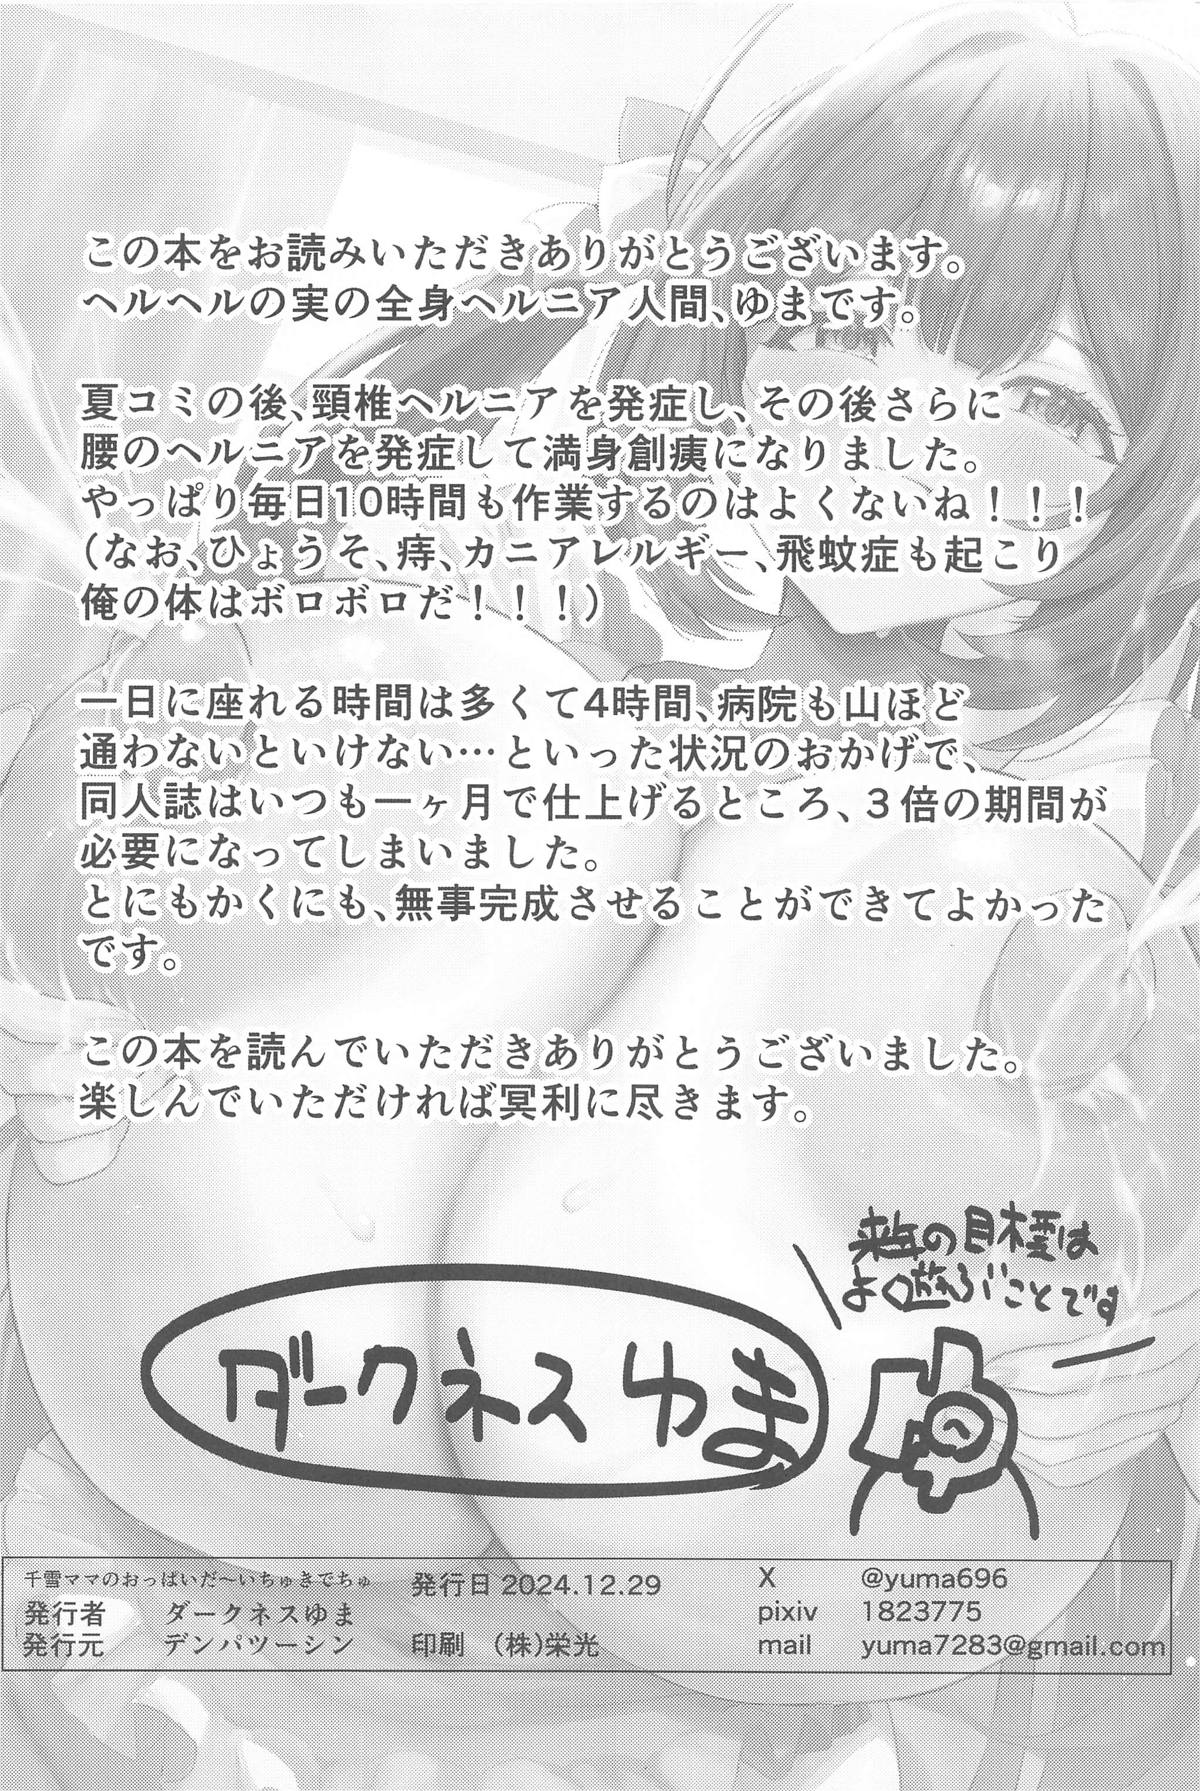 この本をお読みいただきありがとうございます。
ヘルヘルの実の全身ヘルニア人間、ゆまです。
夏コミの後、頸椎ヘルニアを発症し、その後さらに
腰のヘルニアを発症して満身創痍になりました。
やっぱり毎日10時間も作業するのはよくないね！！！
（なお、ひょうそ、痔、カニアレルギー、飛蚊症も起こり
俺の体はボロボロだ！！！）
一日に座れる時間は多くて4時間、病院も山ほど
通わないといけない…といった状況のおかげで、
同人誌はいつも一ヶ月で仕上げるところ、３倍の期間が
必要になってしまいました。
とにもかくにも、無事完成させることができてよかった
です。
この本を読んでいただきありがとうございました。
楽しんでいただければ冥利に尽きます。
来年の目標は
よく遊ぶことです
ダークネスゆま
千雪ママのおっぱいだ～いちゅきでちゅ
発行者 ダークネスゆま
発行元 デンパツーシン
発行日 2024.12.29
印刷 （株）栄光
X @yuma696
pixiv 1823775
mail yuma7283@gmail.com